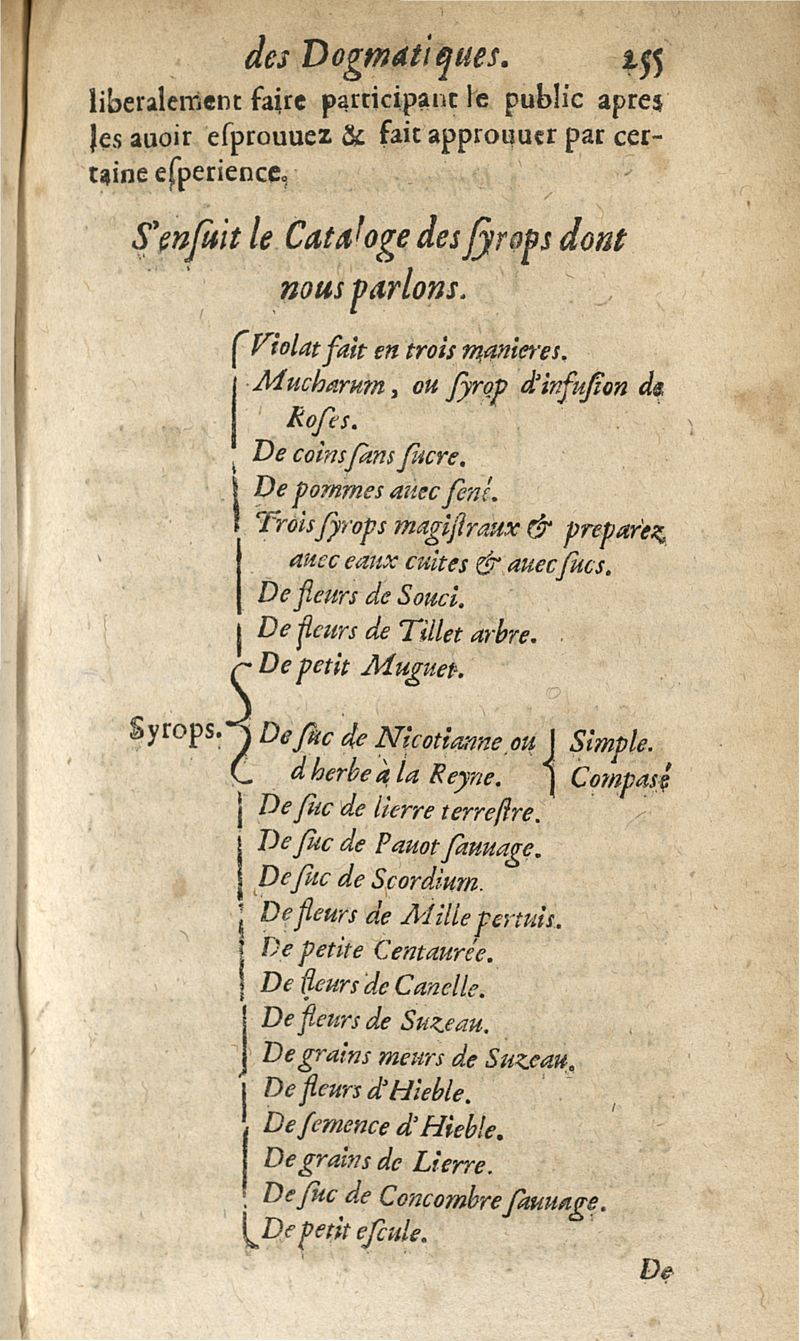 des Dogmatiques. 255
liberalement faire participant le public apres
les auoir eſprouuez & fait approuuer par cer-
taine eſperience.
S'enſuit le Cataloge des ſyrops dont
nous parlons.
Violat fait en trois manieres.
Mucharum, ou ſyrop d'infuſion de
Roſes.
De coins ſans ſucre.
De pommes auec ſené.
Trois ſyrops magiſtraux & preparez
auec eaux cuites & auec ſucs.
De fleurs de Souci.
De fleurs de Tillet arbre.
De petit Muguet.
Syrops. De ſuc de Nicotianne ou Simple.
d'herbe à la Reyne. Compasé
De ſuc de lierre terreſtre.
De ſuc de Pauot ſauuage.
De ſuc de Scordium.
De fleurs de Mille pertuis.
De petite Centaurée.
De fleurs de Canelle.
De fleurs de Suzeau.
De grains meurs de Suzeau.
De fleurs d'Hieble.
De ſemence d'Hieble.
De grains de Lierre.
De ſuc de Concombre ſauuage.
De petit eſcule.
De